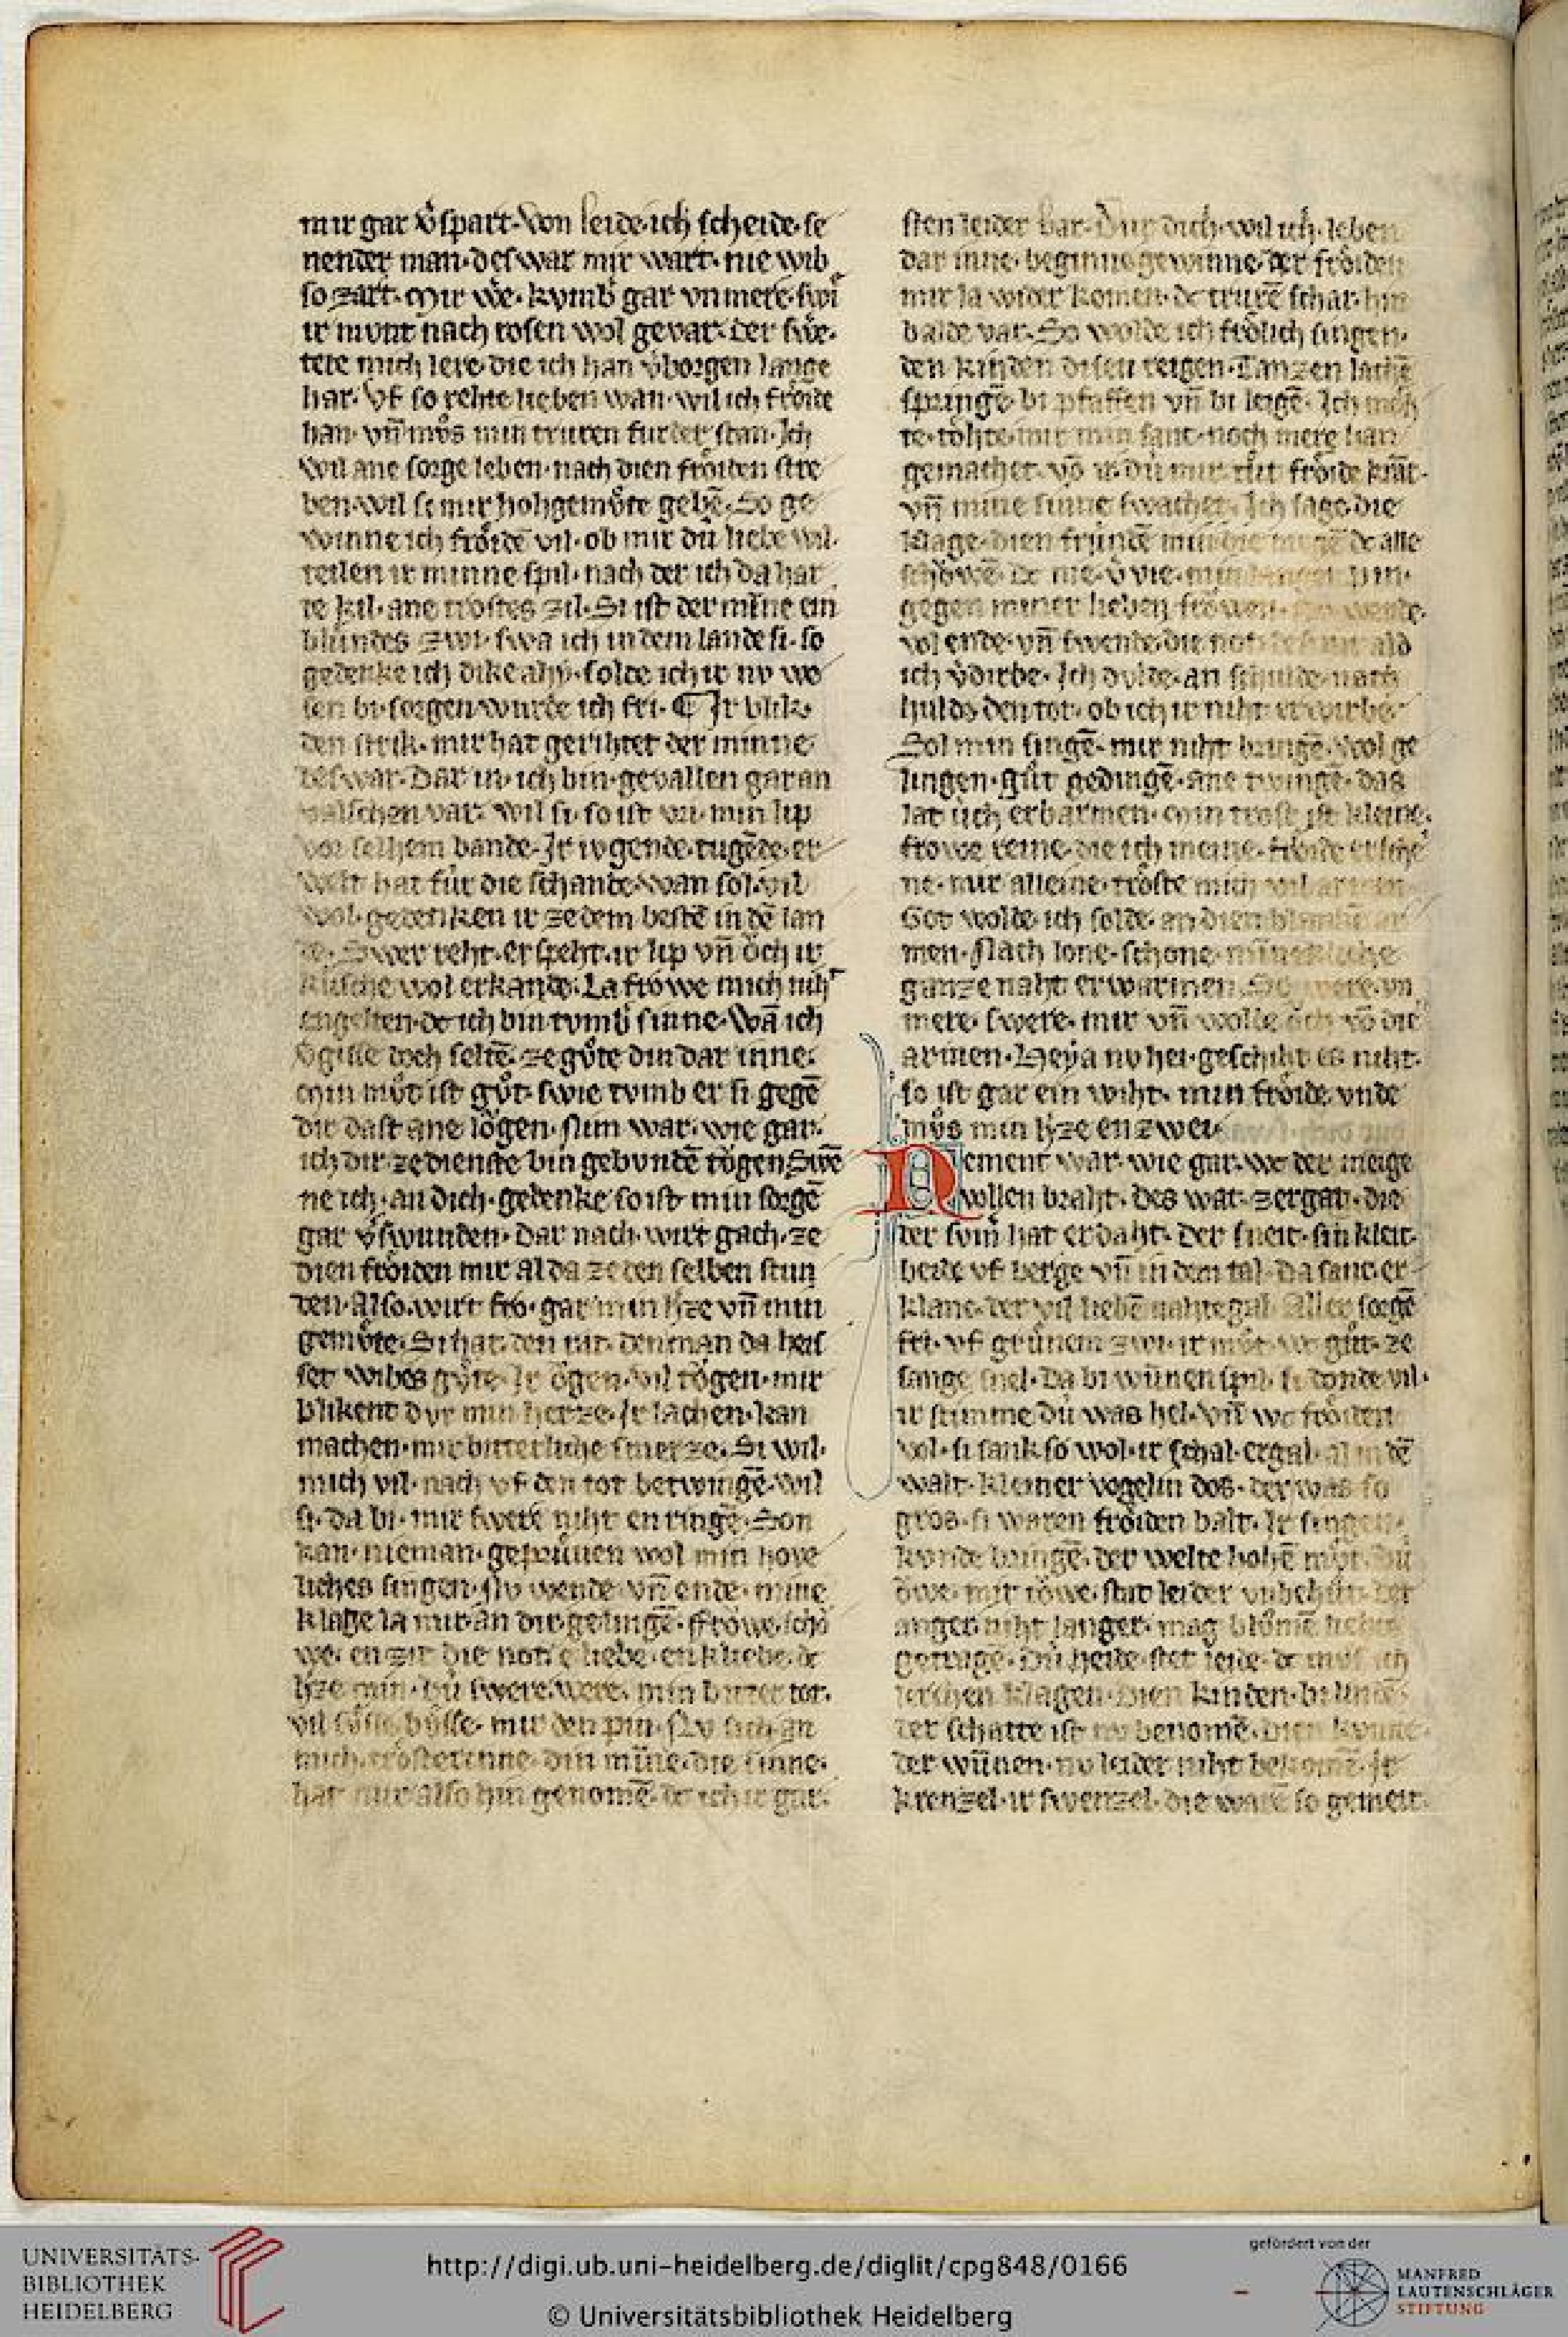 mir gar v̾spart·Von leide·ich scheide·se
nender man·des war mir wart·nie wib
so zart·Mir we·kvmb gar vnmere·swi
ir munt nach rosen wol gevar·der swe·
tete mich lere·die ich han v̾borgen lange
har·Vf so rehte lieben wan·wil ich froͤide
han·vn̄ mvͦs min truren furder stan·Ich
wil ane sorge leben·nach dien froͤiden stre
ben·wil si mir hohgemvͤte gebē·So ge
winne ich froͤidē vil·ob mir dú liebe wil·
teilen ir minne spil·nach der ich da har
te kil·ane trostes zil·Si ist der mīne ein
blúndes zwi·swa ich in dem lande si·so
gedenke ich dike ahy·solde ich ir nv we
sen bi·sorgen wurde ich fri·¶ Ir blik·
den strik·mir hat gerihtet der minne
des war·Dar in·ich bin·gevallen gar an
valschen var·wil si·so ist vri·min lip
vor selhem bande·Ir ivgende·tugēde·er
welt hat fúr die schande·wan sol·vil
wol·gedenken ir ze dem bestē in dē lan
de·Swer reht·er speht·ir lip vn̄ oͮch ir
kúsche wol erkande·La froͮwe mich niht
engelten·dc ich bin tvmb̾ sinne·Wā ich
v̾gisse doch seltē·ze gvͦte din dar inne·
Min mvͦt ist gvͦt·swie tvmb er si gegē
dir dast ane loͮgen·Nim war·wie gar·
ich dir·ze dienste bin gebundē toͮgen Swē
ne ich·an dich·gedenke so ist·min sorgē
gar v̾swunden·dar nach·wirt gach·ze
dien froͤiden mir al da ze den selben stun
den·Also·wirt fro·gar min h̾ze vn̄ min
gemvͤte·Si hat·den rat·den man da heis
set wibes gvͤte·Ir oͮgen·vil toͮgen·mir
blikent dvr min herze·Ir lachen·kan
machen·mir bitterliche smerze·Si wil·
mich vil·nach vf den tot betwingē·wil
si·da bi·mir swere niht en ringē·Son
kan·nieman·geprúven wol min hove
liches singen·Nv wende·vn̄ ende·mine
klage la mir an dir gelingē·ffroͮwe·scho
we·en zit die not·e liebe·enkliebe·dc
h̾ze min·dú swere·were·min bitter tot·
vil sússe·bússe·mir den pin·Nv sich an
mich·trosterinne·din mīne·die sinne·
hat mir also hin genomē·dc ich ir gar·
sten leider bar·Dur dich·wil ich·leben
dar inne·beginne gewinne·der froͤiden
mir la wider komen·dc trurē schar·hin
balde var·So wolde ich froͤlich singen·
den kinden disen reigen·Tanzen lachē
springē·bi pfaffen vn̄ bi leigē·Ich moͤh
te·toͤhte·mir min sanc·noch mere han
gemachet·
vn̄ mine sinne swachet·Ich sage·die
klage·dien frúndē
gegen miner lieben froͮwen·
vol ende·vn̄ swende·die not·
ich v̾dirbe·Ich dvlde·an schulde·nach
hulds den tot·ob ich ir niht erwirbe·
Sol min singē·mir niht bringē·wol ge
lingen·gůt gedingē·ane twingē·das
lat úch erbarmen·Min trost ist kleine·
froͮwe reine·die ich meine·froͤide ersche
ne·mir alleine·troste mich vil armen·
Got wolde·ich solde·an dien blanken ar
men·Nach lone·schone·mīnekliche
ganze naht erwarmen·So were·vn
mere·swere·mir vn̄ wolde
armen·Heya nv hei·geschiht es niht·
so ist gar ein wiht·min froͤide·vnde
mvͦs min h̾ze enzwei·
Nement war·wie gar·wc der meige
wollen braht·des wat·zergat·die
der som̾ hat erdaht·der sneit·sin kleit·
beide vf berge vn̄ in dem tal·da sanc·er
klanc·der vil liebē nahtegal·Aller sorgē
fri·vf grúnem zwi·ir mvͦt·wc gůt·ze
sange snel·da bi wūnen spil·si donde vil·
ir stimme dú was hel·vn̄ wc froͤiden
vol·si sank so wol·ir schal·ergal·al in dē
walt·kleiner vogelin dos·der was so
gros·si waren froͤiden balt·Ir singen·
konde bringē·der welte hohē mvͦt·
oͮwe·mir toͮwe·stat leider vnbehůt·der
anger·niht langer·mag blůmē liehte
getragē·Dú heide·stet leide·dc mvͦs ich
klagen·Dien kinden·bi linden
der schatte ist nv benomē·
der wūnen·nv leider niht bekomē·Ir
krenzel·ir swenzel·die warē so gemeit·
UNIVERSITÄTS-
BIBLIOTHEK
HEIDELBERG
http://digi.ub.uni-heidelberg.de/diglit/cpg848/0166
© Universitätsbibliothek Heidelberg
gefördert von der
MANFRED
LAUTENSCHLÄGER
STIFTUNG